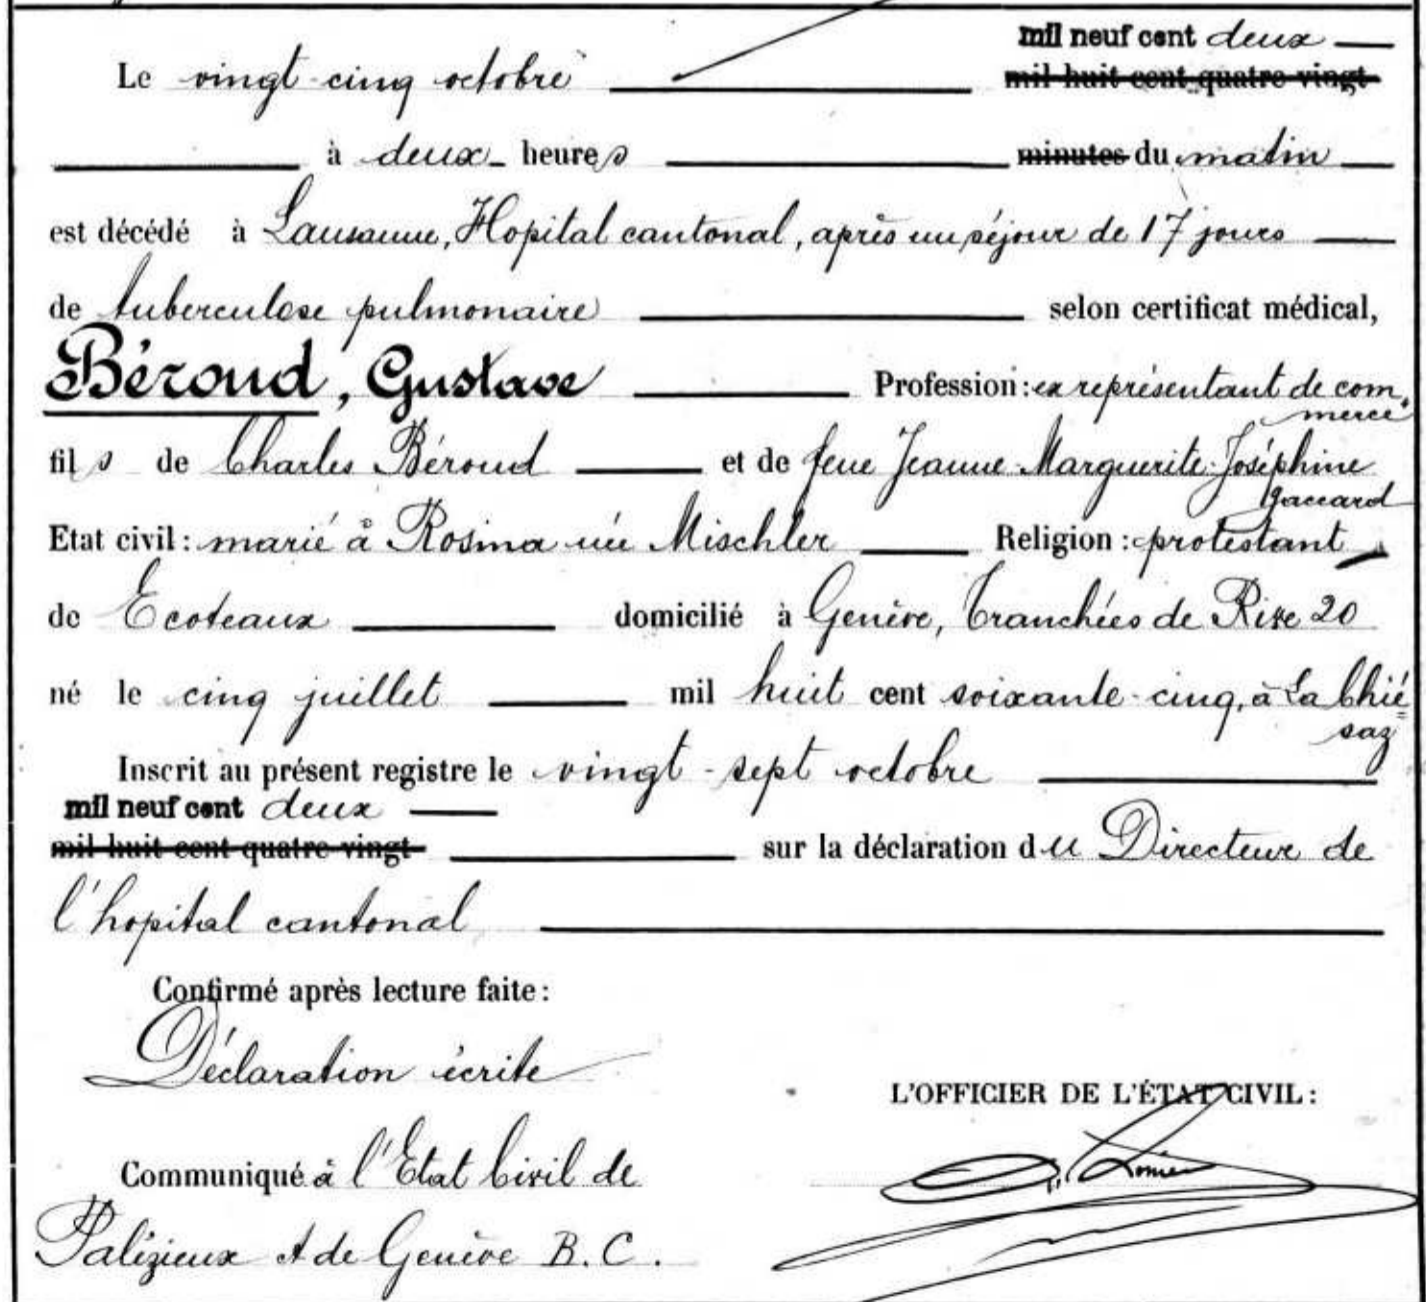 mil neuf cent deux
Le vingt-cinq octobre mil huit cent quatre vingt
à deux heures minutes du matin
est décédé à Lausanne, Hopital cantonal, après un séjour de 17 jours
de tuberculose pulmonaire selon certificat médical,
Béroud, Gustave Profession: ex représentant de com-
merce
fils de Charles Béroud et de feue Jeanne-Marguerite-Joséphine
Jaccard
Etat civil: marié à Rosina née Mischler Religion: protestant
de Ecoteaux domicilié à Genève, Tranchées de Rive 20
né le cinq juillet mil huit cent soixante-cinq, à La Chié=
saz
Inscrit au présent registre le vingt-sept octobre
mil neuf cent deux
mil huit cent quatre vingt sur la déclaration du Directeur de
l'hopital cantonal
Confirmé après lecture faite:
Déclaration écrite
L'OFFICIER DE L'ÉTAT CIVIL:
Communiqué à l'Etat Civil de
Palézieux et de Genève B. C.